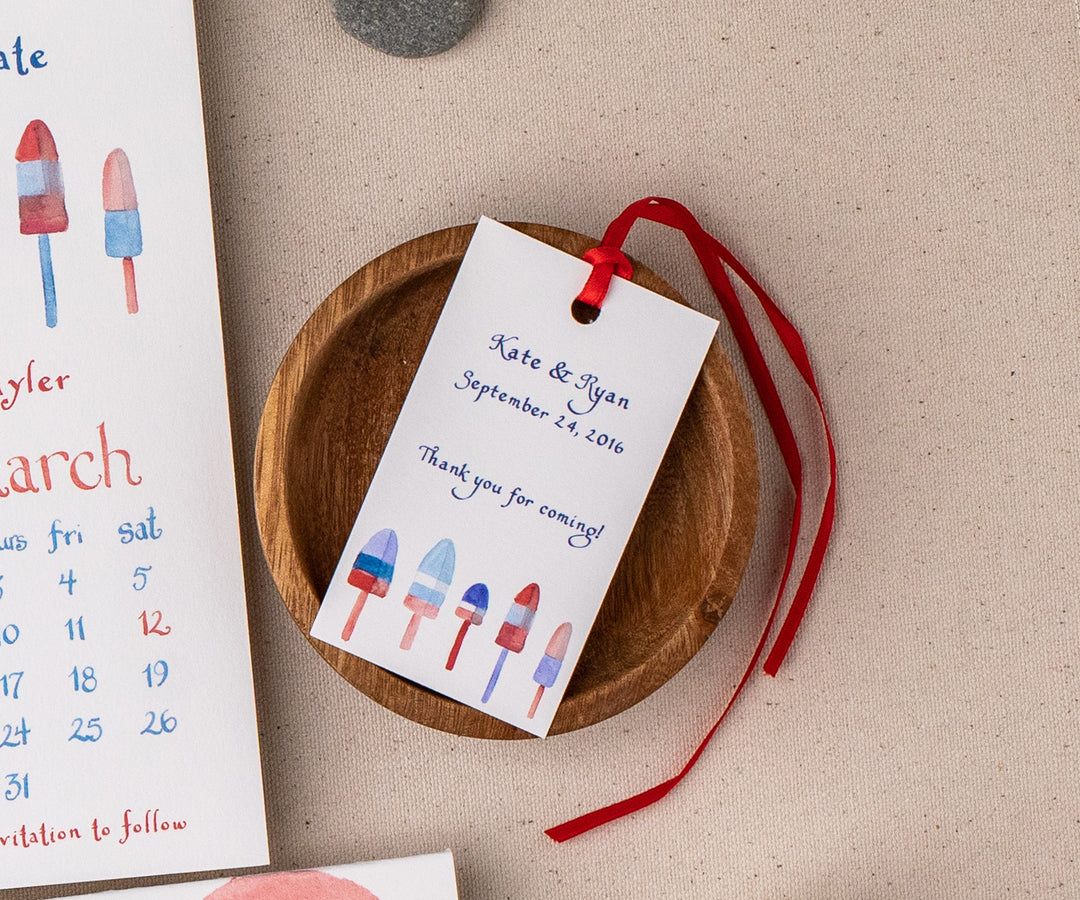 Kate & Ryan
September 24, 2016
Thank you for coming!
arch
fri sat
4 5
11 12
17 18 19
24 25 26
31
to follow